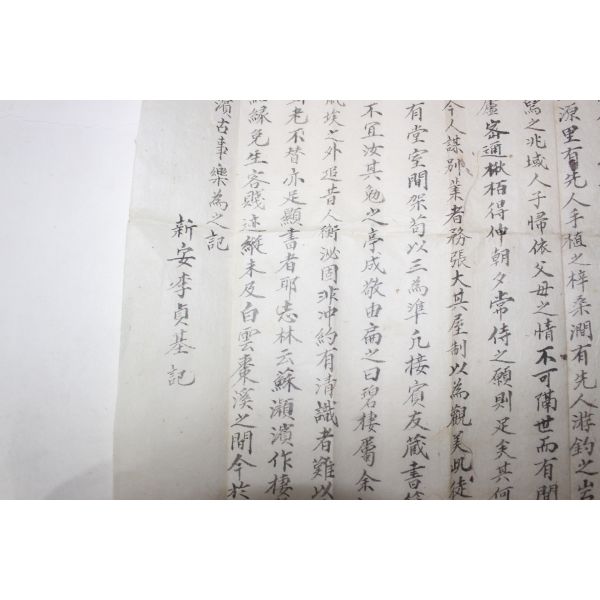 源里有先人手植之梓桑澗有先人游釣之岩
之兆域人子歸依父母之情不可隔世而有間
密通楸栢得伸朝夕常侍之願則足矣其何
今人謀別業者務張大其屋制以為觀美此徒
有堂室間架苟以三為準凡接賓友蔵書
不宜汝其勉之亭成敬由扁之曰碧棲屬余
埃之外追昔人衡泌固非沖約有清識者難以
老不替亦足顯書者耶志林云蘇瀬濱作棲
緑免生客賤迹縱未及白雲棗溪之間今於
濱古事樂為之記
新安李貞基記